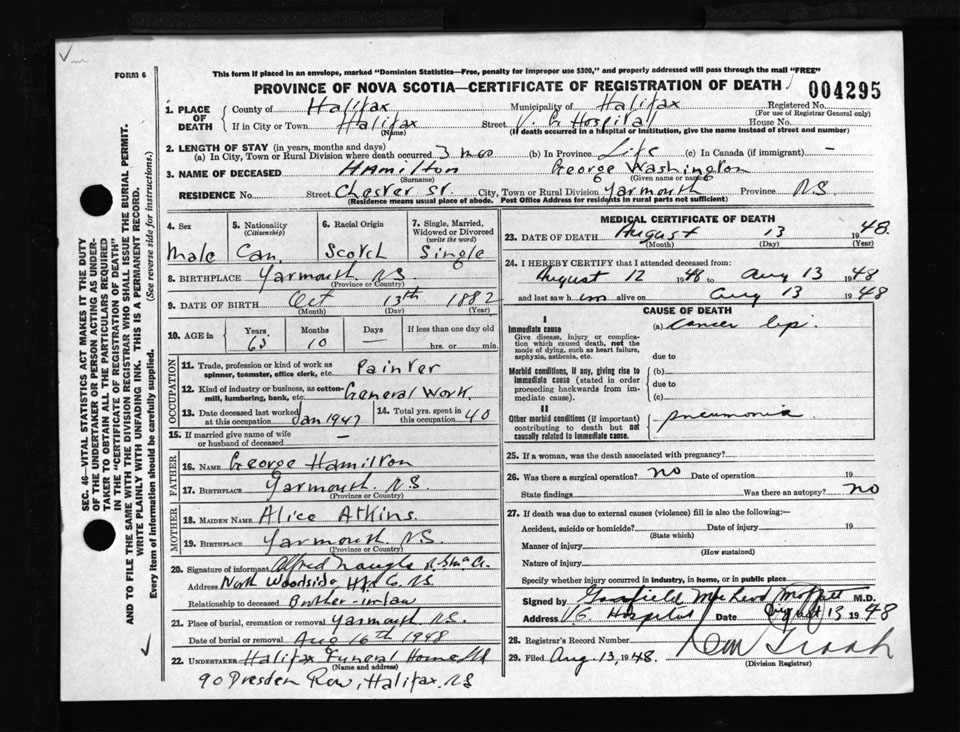 FORM 6
This form if placed in an envelope, marked "Dominion Statistics—Free, penalty for improper use $300," and properly addressed will pass through the mail "FREE"
PROVINCE OF NOVA SCOTIA—CERTIFICATE OF REGISTRATION OF DEATH
004295
1. PLACE OF DEATH
County of Halifax Municipality of Halifax Registered No.
(For use of Registrar General only)
If in City or Town Halifax Street V. G. Hospital House No.
(Name) (If death occurred in a hospital or institution, give the name instead of street and number)
2. LENGTH OF STAY (in years, months and days)
(a) In City, Town or Rural Division where death occurred 3 mos (b) In Province Life (c) In Canada (if immigrant) -
3. NAME OF DECEASED Hamilton George Washington
(Surname) (Given name or names)
RESIDENCE No. Street Chester St. City, Town or Rural Division Yarmouth Province N.S.
(Residence means usual place of abode. Post Office Address for residents in rural parts not sufficient)
SEC. 46—VITAL STATISTICS ACT MAKES IT THE DUTY
OF THE UNDERTAKER OR PERSON ACTING AS UNDER-
TAKER TO OBTAIN ALL THE PARTICULARS REQUIRED
IN THE "CERTIFICATE OF REGISTRATION OF DEATH"
AND TO FILE THE SAME WITH THE DIVISION REGISTRAR WHO SHALL ISSUE THE BURIAL PERMIT.
WRITE PLAINLY WITH UNFADING INK. THIS IS A PERMANENT RECORD.
Every item of information should be carefully supplied. (See reverse side for instructions.)
4. Sex
Male
5. Nationality
(Citizenship)
Can.
6. Racial Origin
Scotch
7. Single, Married, Widowed or Divorced
(write the word)
Single
8. BIRTHPLACE Yarmouth N.S.
(Province or Country)
9. DATE OF BIRTH Oct 13th 1882
(Month) (Day) (Year)
10. AGE in Years Months Days If less than one day old
65 10 — hrs. or min.
OCCUPATION
11. Trade, profession or kind of work as
spinner, teamster, office clerk, etc. Painter
12. Kind of industry or business, as cotton-
mill, lumbering, bank, etc. General Work.
13. Date deceased last worked
at this occupation Jan 1947
14. Total yrs. spent in
this occupation 40
15. If married give name of wife
or husband of deceased —
FATHER
16. NAME George Hamilton
17. BIRTHPLACE Yarmouth. N.S.
(Province or Country)
MOTHER
18. MAIDEN NAME Alice Atkins.
19. BIRTHPLACE Yarmouth N.S.
(Province or Country)
20. Signature of informant Alfred Naugle
Address North Woodside Hfx Co. N.S.
Relationship to deceased Brother-inlaw
21. Place of burial, cremation or removal Yarmouth. N.S.
Date of burial or removal Aug 16th 1948
22. UNDERTAKER Halifax Funeral Home Ltd
(Name and address)
90 Dresden Row, Halifax. NS
MEDICAL CERTIFICATE OF DEATH
23. DATE OF DEATH August 13 1948.
(Month) (Day) (Year)
24. I HEREBY CERTIFY that I attended deceased from:
August 12 1948 to Aug 13 1948
and last saw him alive on Aug 13 1948
CAUSE OF DEATH
I
Immediate cause
Give disease, injury or complica-
tion which caused death, not the
mode of dying, such as heart failure,
asphyxia, asthenia, etc.
(a) Cancer lip.
due to
Morbid conditions, if any, giving rise to
immediate cause (stated in order
proceeding backwards from im-
mediate cause).
(b)
due to
(c)
II
Other morbid conditions (if important)
contributing to death but not
causally related to immediate cause.
pneumonia
25. If a woman, was the death associated with pregnancy?
26. Was there a surgical operation? no Date of operation 19
State findings Was there an autopsy? no
27. If death was due to external causes (violence) fill in also the following:—
Accident, suicide or homicide? Date of injury 19
(State which)
Manner of injury
(How sustained)
Nature of injury
Specify whether injury occurred in industry, in home, or in public place
Signed by Garfield McLeod Moffatt M.D.
Address V.G. Hospital Date August 13 1948
28. Registrar's Record Number
29. Filed Aug. 13, 1948.
(Division Registrar)